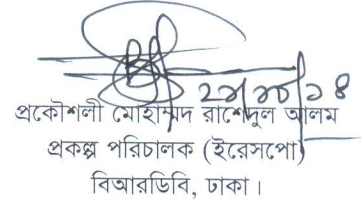 ২১/১০/১৪
প্রকৌশলী মোহাম্মদ রাশেদুল আলম
প্রকল্প পরিচালক (ইরেসপো)
বিআরডিবি, ঢাকা।